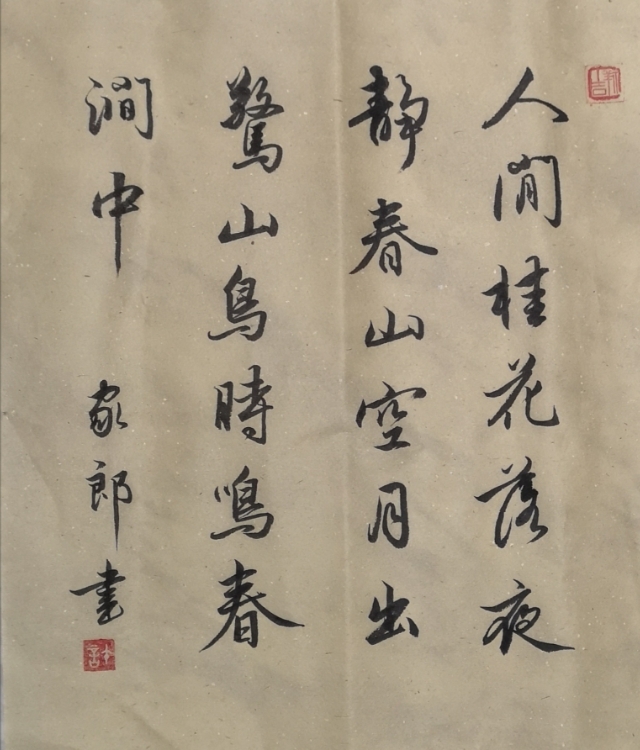 人間桂花落夜
靜春山空月出
驚山鳥時鳴春
澗中
家郎書